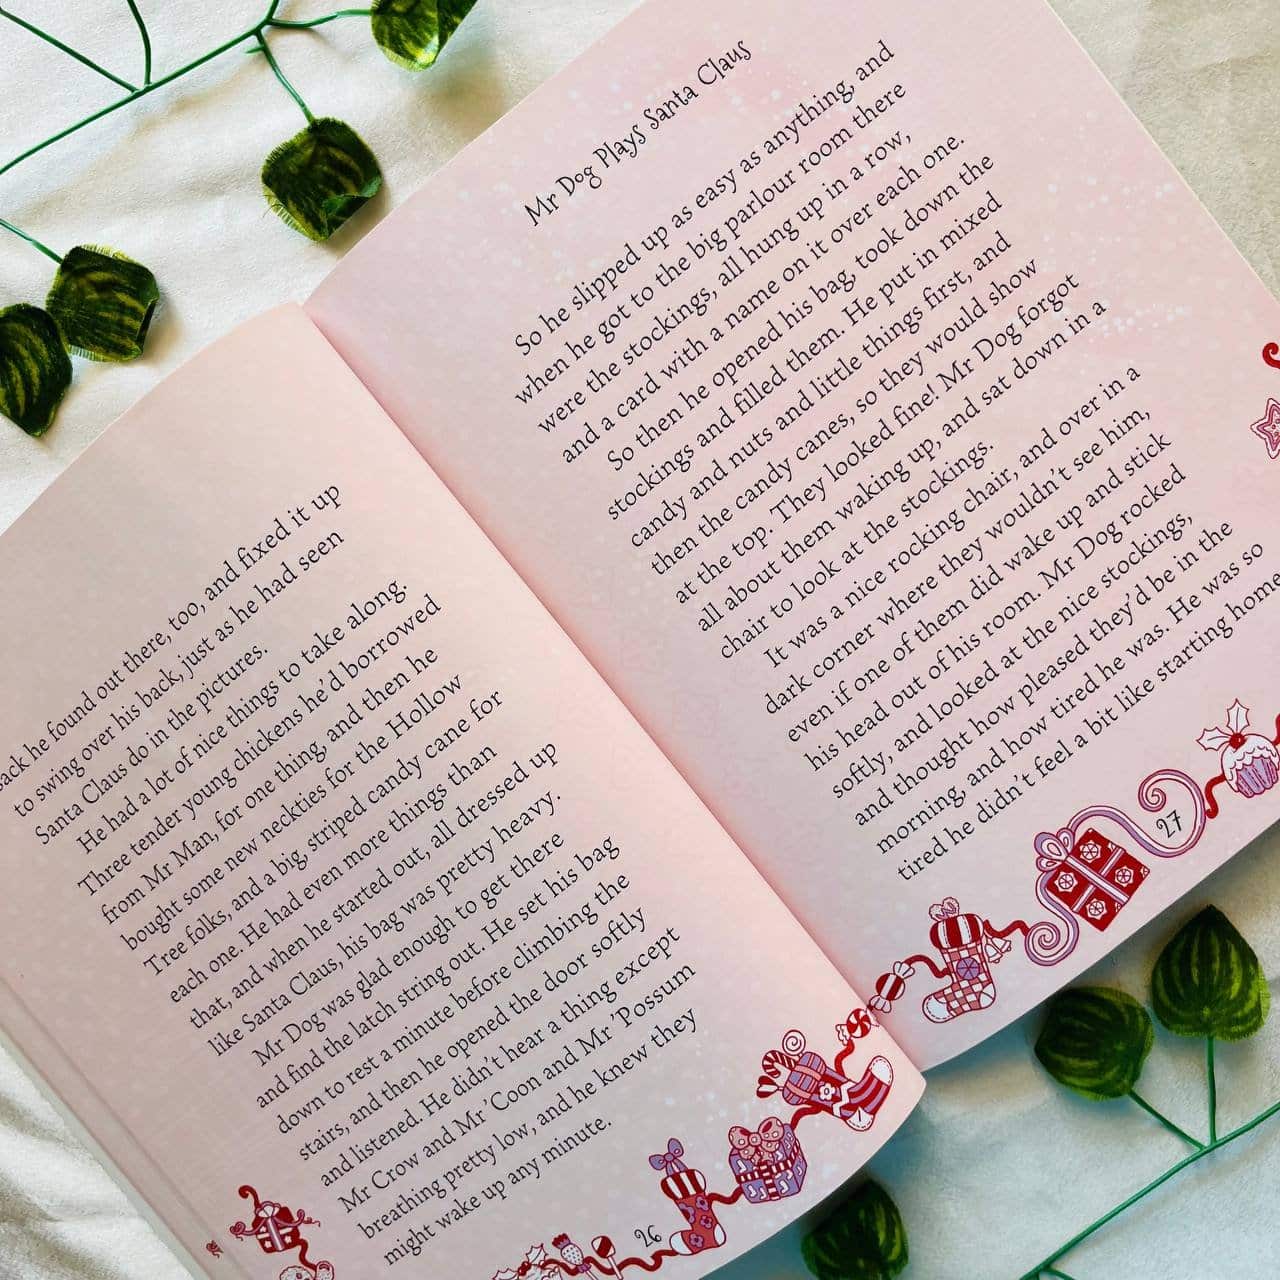 he found out there, too, and fixed it up
to swing over his back, just as he had seen
Santa Claus do in the pictures.
He had a lot of nice things to take along.
Three tender young chickens he'd borrowed
from Mr Man, for one thing, and then he
bought some new neckties for the Hollow
Tree folks, and a big, striped candy cane for
each one. He had even more things than
that, and when he started out, all dressed up
like Santa Claus, his bag was pretty heavy.
Mr Dog was glad enough to get there
and find the latch string out. He set his bag
down to rest a minute before climbing the
stairs, and then he opened the door softly
and listened. He didn't hear a thing except
Mr Crow and Mr 'Coon and Mr 'Possum
breathing pretty low, and he knew they
might wake up any minute.
26
Mr Dog Plays Santa Claus
So he slipped up as easy as anything, and
when he got to the big parlour room there
were the stockings, all hung up in a row,
and a card with a name on it over each one.
So then he opened his bag, took down the
stockings and filled them. He put in mixed
candy and nuts and little things first, and
then the candy canes, so they would show
at the top. They looked fine! Mr Dog forgot
all about them waking up, and sat down in a
chair to look at the stockings.
It was a nice rocking chair, and over in a
dark corner where they wouldn't see him,
even if one of them did wake up and stick
his head out of his room. Mr Dog rocked
softly, and looked at the nice stockings,
and thought how pleased they'd be in the
morning, and how tired he was. He was so
tired he didn't feel a bit like starting home
27